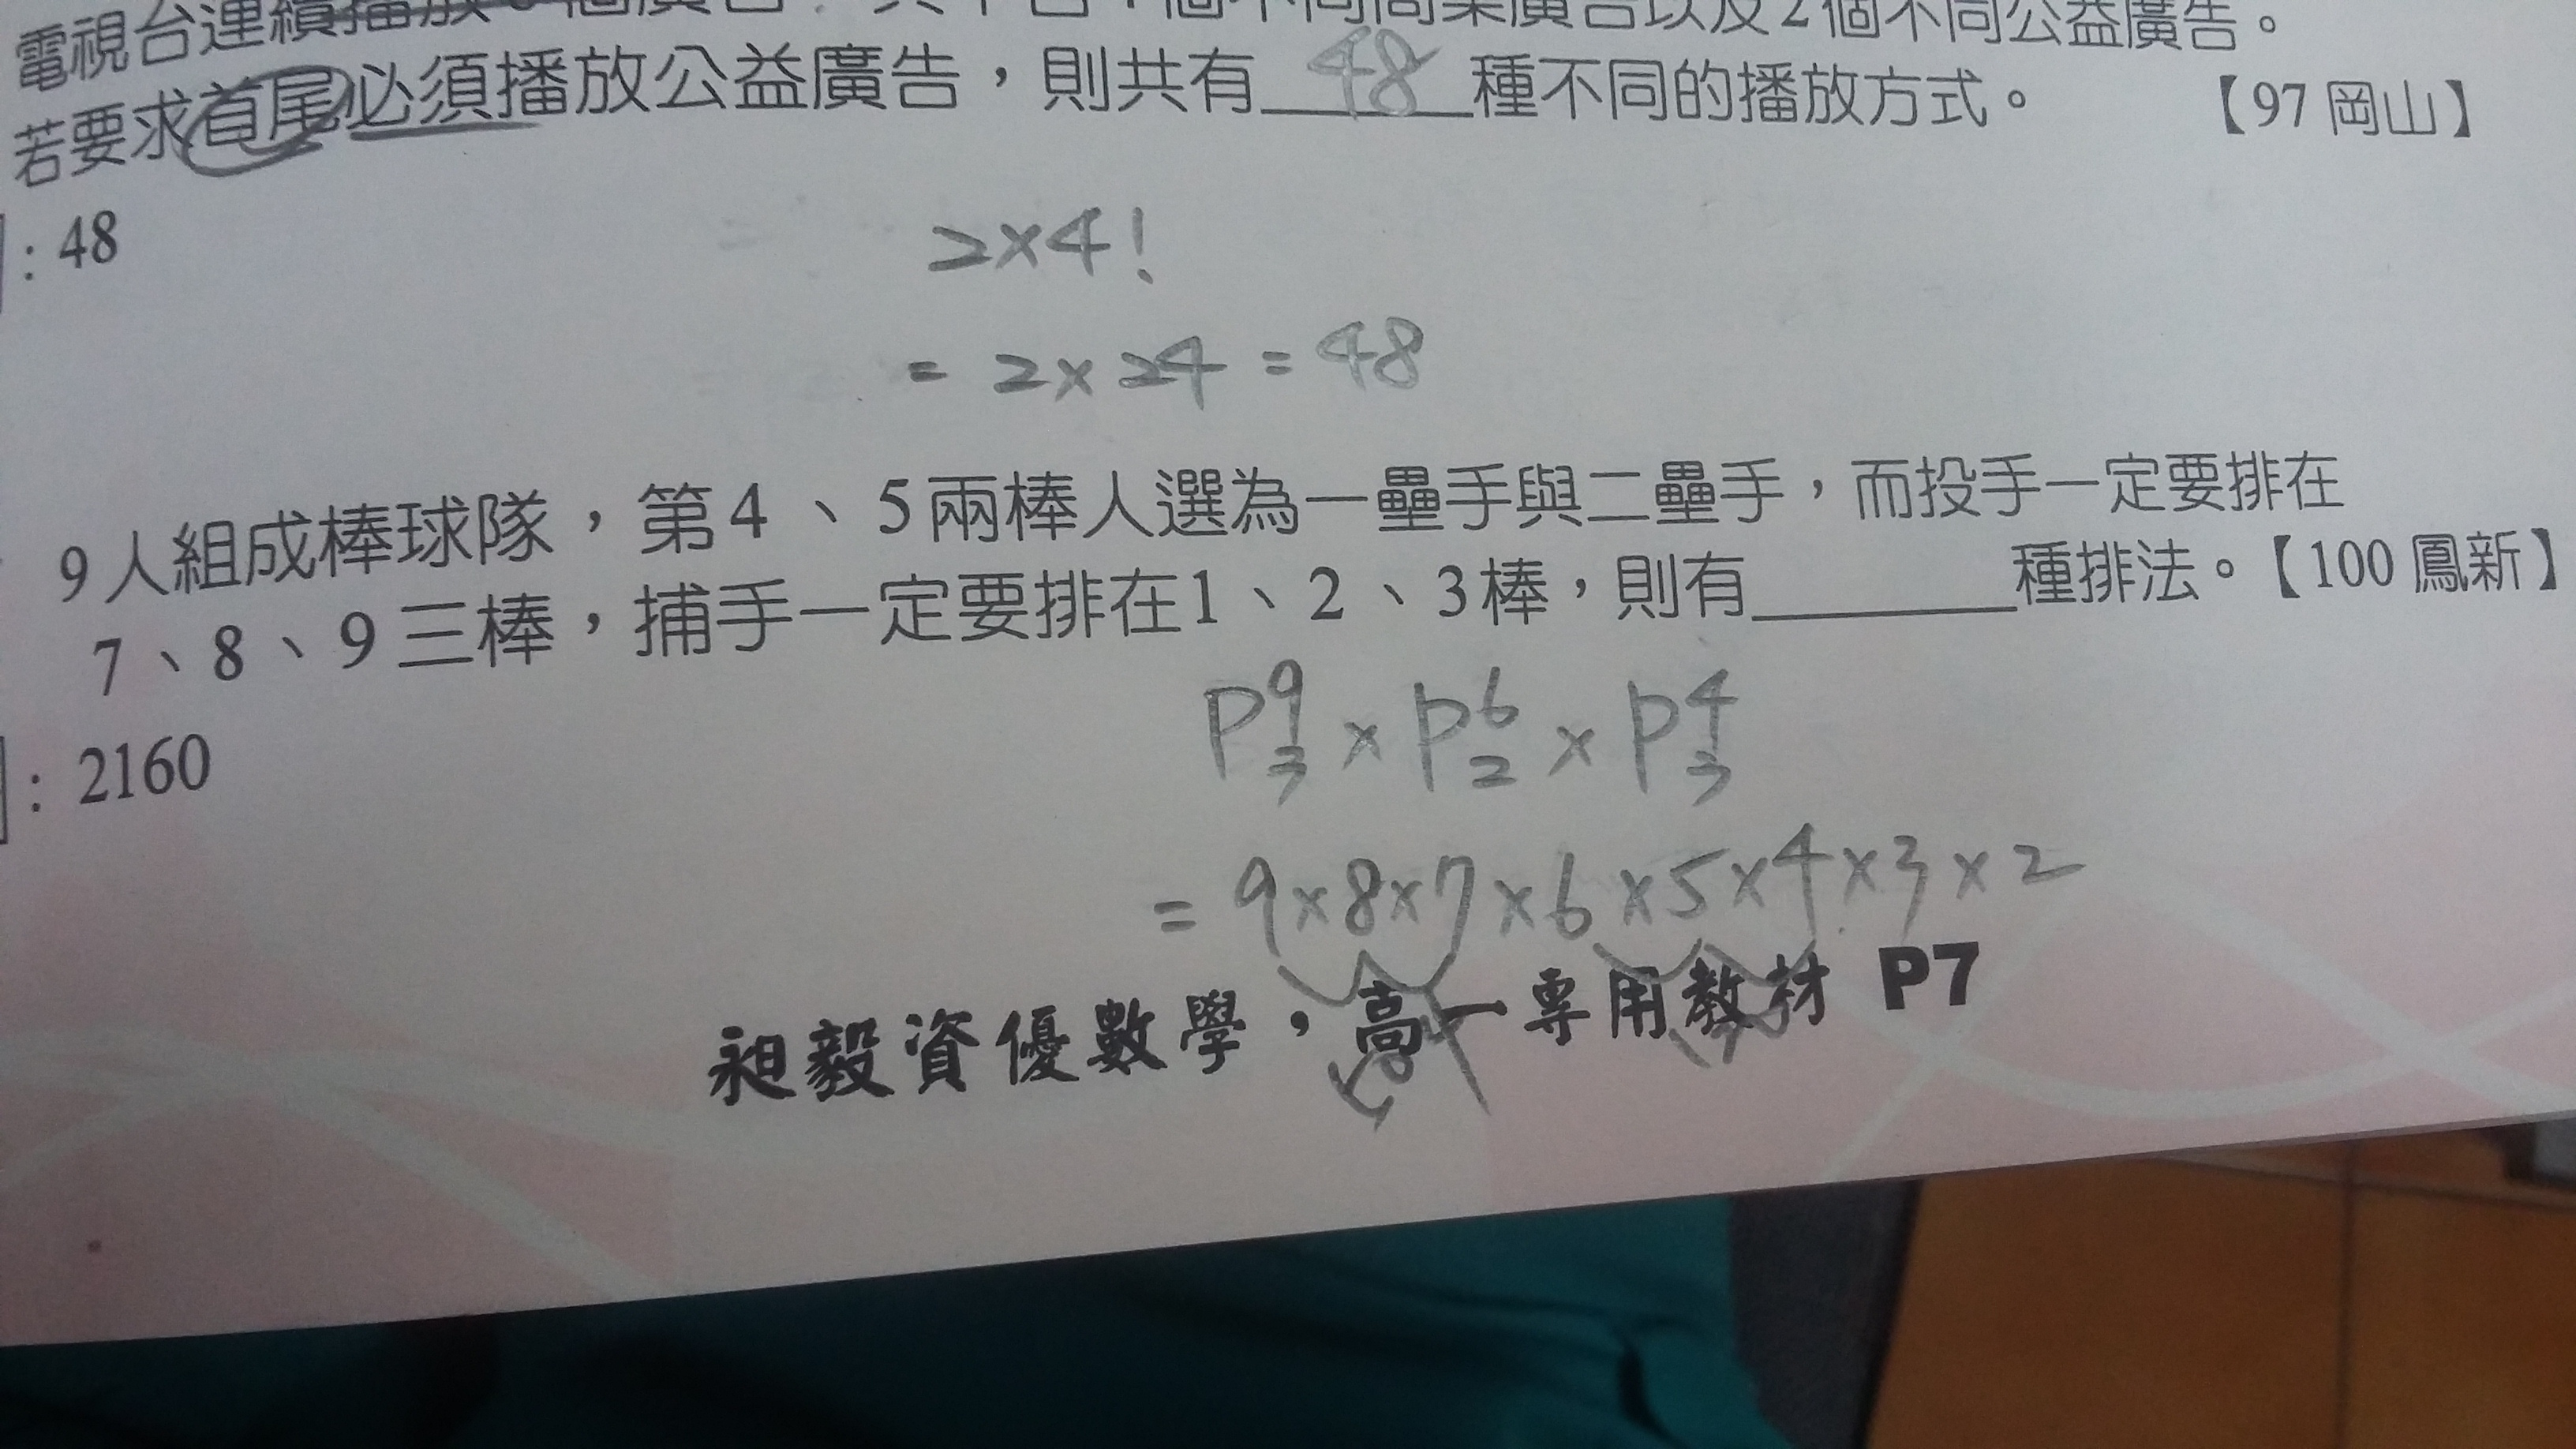 電視台連續播放6個廣告，其中含4個不同商業廣告以及2個不同公益廣告。
若要求首尾必須播放公益廣告，則共有 48 種不同的播放方式。 【97 岡山】
：48
2×4!
= 2×24 = 48
9人組成棒球隊，第4、5兩棒人選為一壘手與二壘手，而投手一定要排在
7、8、9三棒，捕手一定要排在1、2、3棒，則有________種排法。【100 鳳新】
：2160
P⁹₃ × P⁶₂ × P⁴₃
= 9×8×7×6×5×4×3×2
昶毅資優數學，高一專用教材 P7